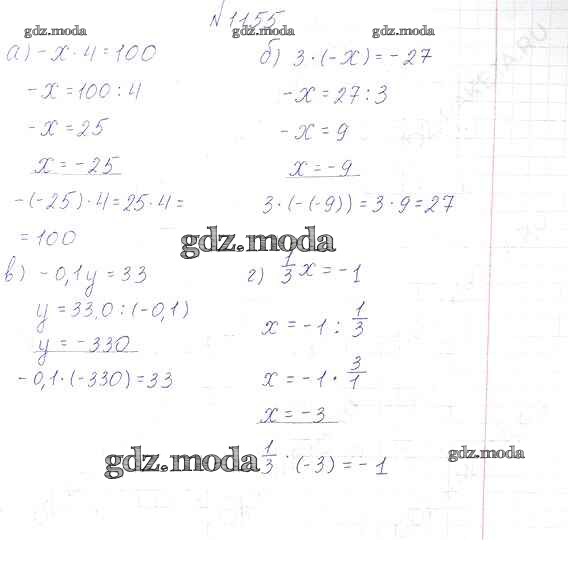 №1155
gdz.moda
gdz.moda
а) -x·4=100
-x=100:4
-x=25
x=-25
-(-25)·4=25·4=
=100
б) 3·(-x)=-27
-x=27:3
-x=9
x=-9
3·(-(-9))=3·9=27
gdz.moda
в) -0,1y=33
y=33,0:(-0,1)
y=-330
-0,1·(-330)=33
г) 1/3 x=-1
x=-1:1/3
x=-1·3/1
x=-3
1/3·(-3)=-1
gdz.moda
gdz.moda